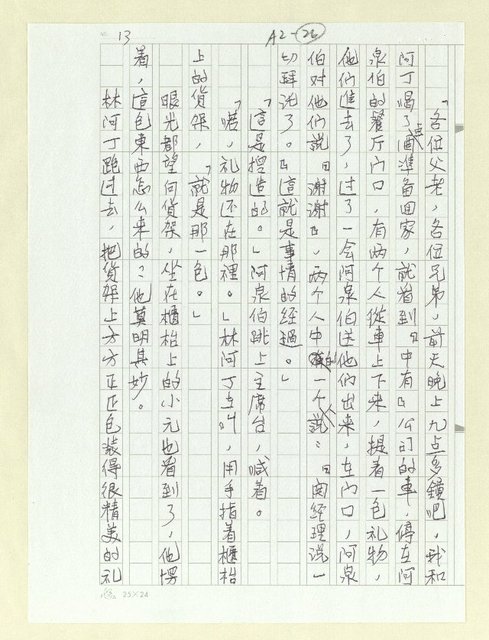 A2-26
13
「各位父老，各位兄弟，前天晚上九点多鐘吧，我和
阿丁喝了酒準备回家，就看到中有公司的車，停在阿
泉伯的餐厅门口，有两个人從車上下来，提着一包礼物，
他们進去了，过了一会阿泉伯送他们出来，在门口，阿泉
伯对他们說『謝謝』，两个人中的一个說：『闵经理說一
切拜託了。』這就是事情的经過。」
「這是捏造的。」阿泉伯跳上主席台，喊着。
「喏，礼物还在那裡。」林阿丁在叫，用手指着櫃枱
上的货架，「就是那一包。」
眼光都望向货架，坐在櫃枱上的小元也看到了，他愣
着，這包東西怎么来的？他莫明其妙。
林阿丁跑过去，把货架上方方正正包装得很精美的礼
25×24